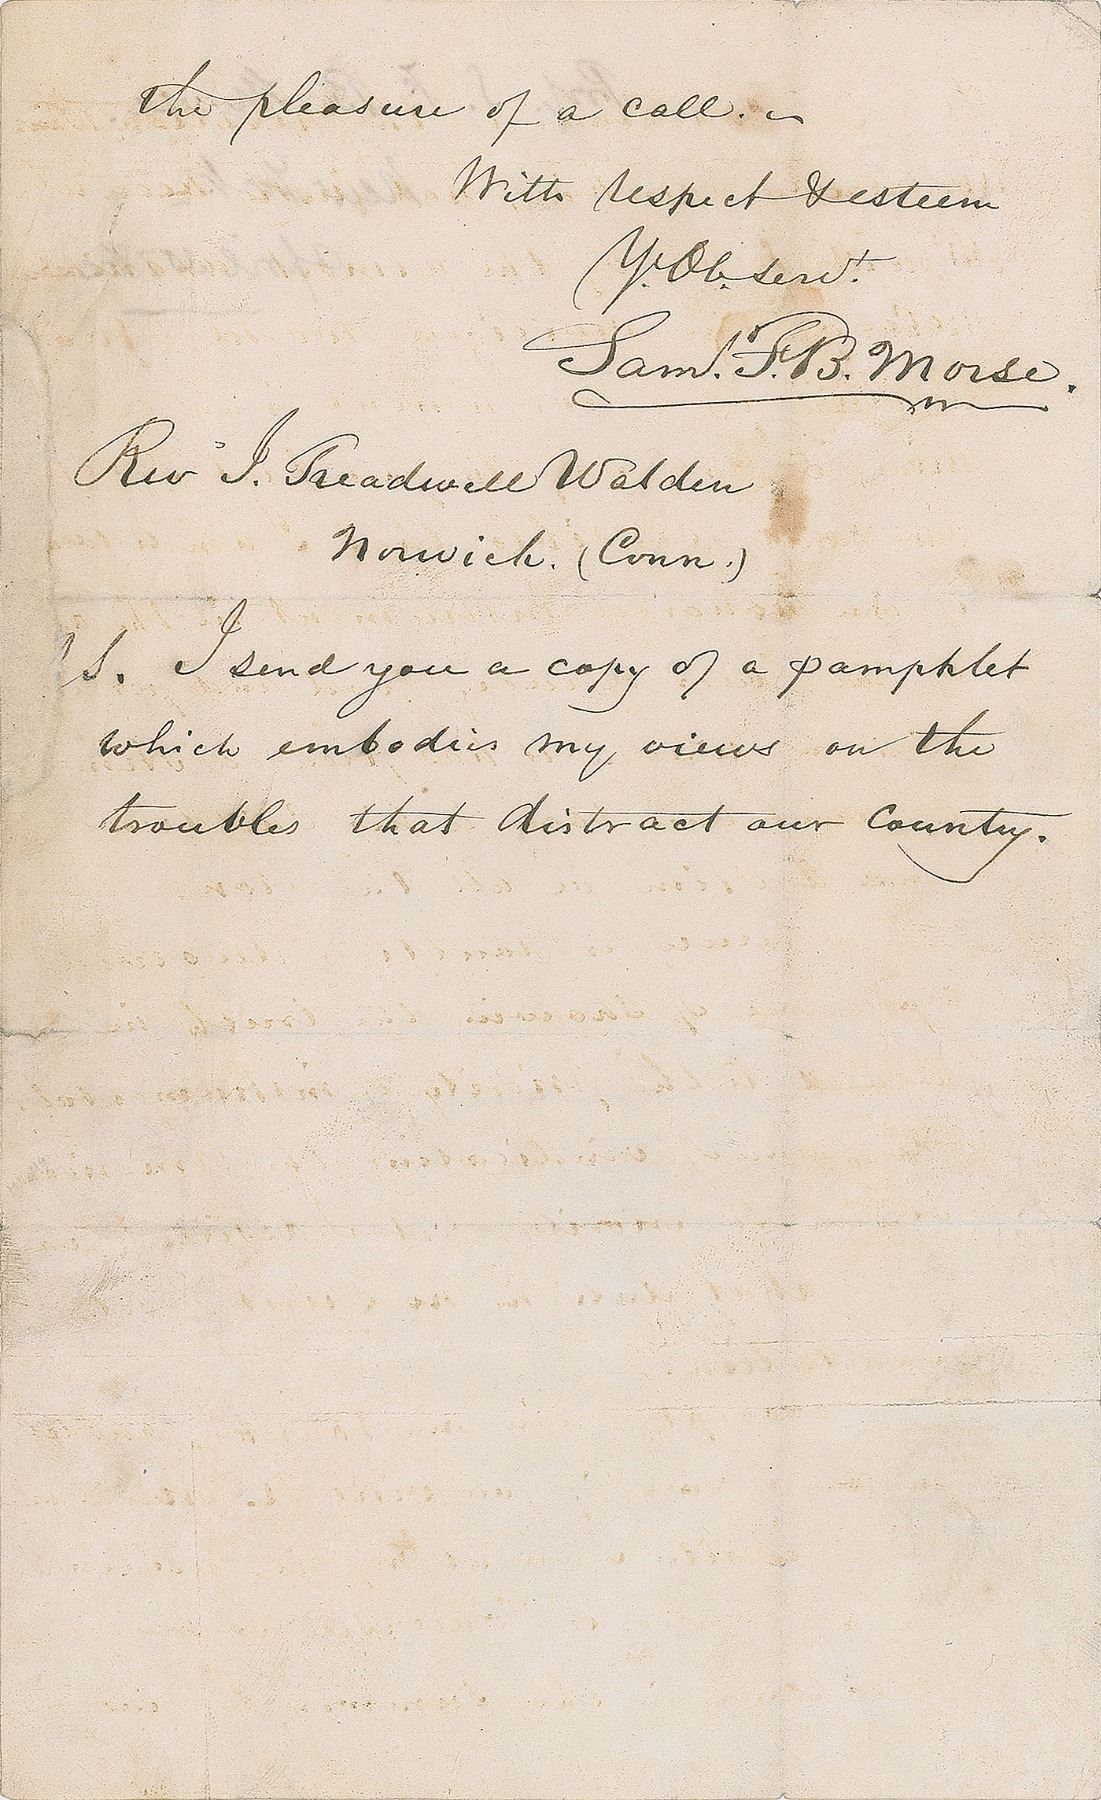 the pleasure of a call.
With respect & esteem
Yr. Ob. servt.
Saml. F. B. Morse.
Rev J. Treadwell Walden
Norwich. (Conn.)
P S. I send you a copy of a pamphlet
which embodies my views on the
troubles that distract our Country.